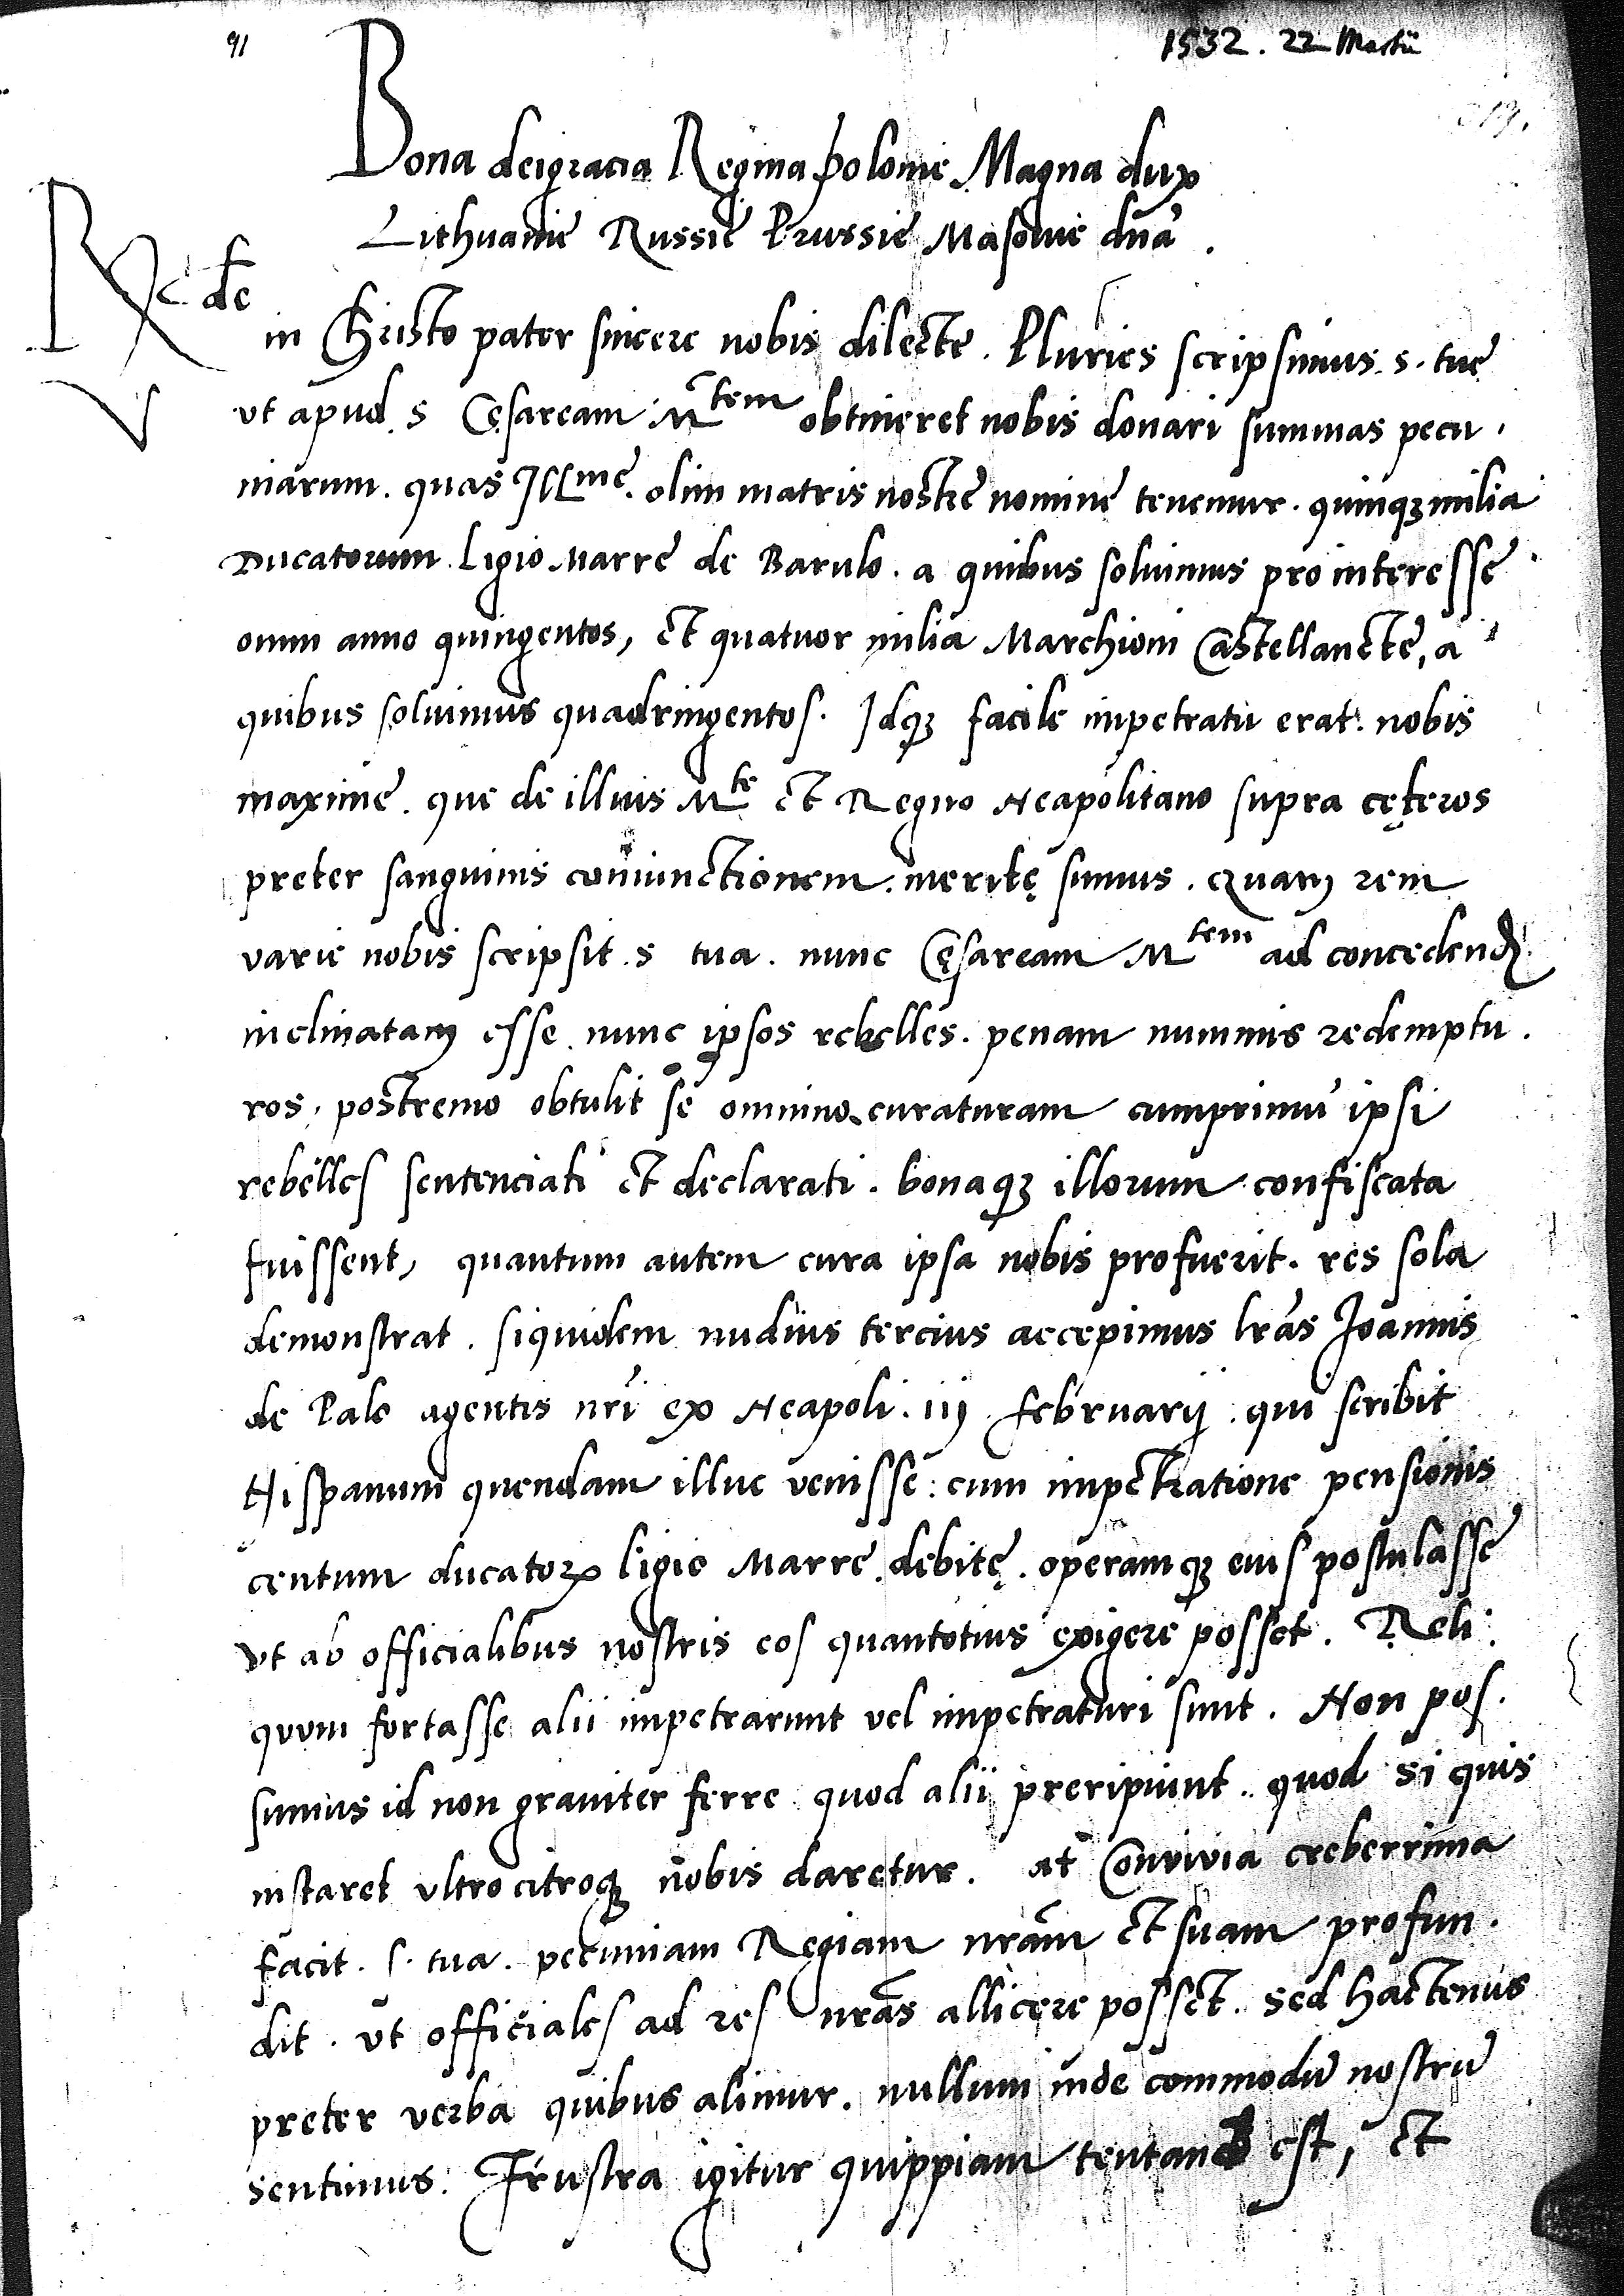 91
1532. 22 Martii
Bona dei gracia Regina polonie Magna dux
Lithuanie Russie Prussie Masovie dn̄a.
Rc de
in Christo pater sincere nobis dilecte. Pluries scripsimus. s. tue
vt apud s Cęsaream Mtem obtineret nobis donari summas pecu.
niarum. quas Illme. olim matris nostre nomine tenemur. quinqꝫ milia
Ducatorum. Ligio Marre de Barulo. a quibus solvimus pro interesse
omni anno quingentos, et quatuor milia Marchioni Castellanete, a
quibus soluimus quadringentos. Idqꝫ facile impetratū erat. nobis
maxime. que de illius Mte et Regno Neapolitano supra cęteros
preter sanguinis coniunctionem. meritę sumus. Quam rem
varie nobis scripsit. s tua. nunc Cęsaream Mtem ad concedend
inclinatam esse. nunc ipsos rebelles. penam nummis redemptu.
ros. postremo obtulit se omnino curaturam cumprimū ipsi
rebelles sentenciati et declarati. bonaqꝫ illorum confiscata
fuissent, quantum autem cura ipsa nobis profuerit. res sola
demonstrat. siquidem nudius tercius accepimus lrās Joannis
de Pale agentis nrī ex Neapoli. iij februarij. qui scribit
Hispanum quendam illuc venisse: cum impetratione pensionis
centum ducatorꝝ ligio Marre debitę. operamqꝫ eius postulasse
vt ab officialibus nostris eos quantotius exigere posset. Reli.
quum fortasse alii impetrarunt vel impetraturi sunt. Non pos.
sumus id non graviter ferre quod alii preripiunt. quod si quis
instaret vltrocitroqꝫ nobis daretur. at Convivia creberrima
facit. s. tua. pecuniam Regiam nrām et suam profun.
dit. vt officiales ad res nrās allicere posset. sed hactenus
preter verba quibus alimur. nullum inde commodū nostrū
sentimus. Frustra igitur quippiam tentand est, et